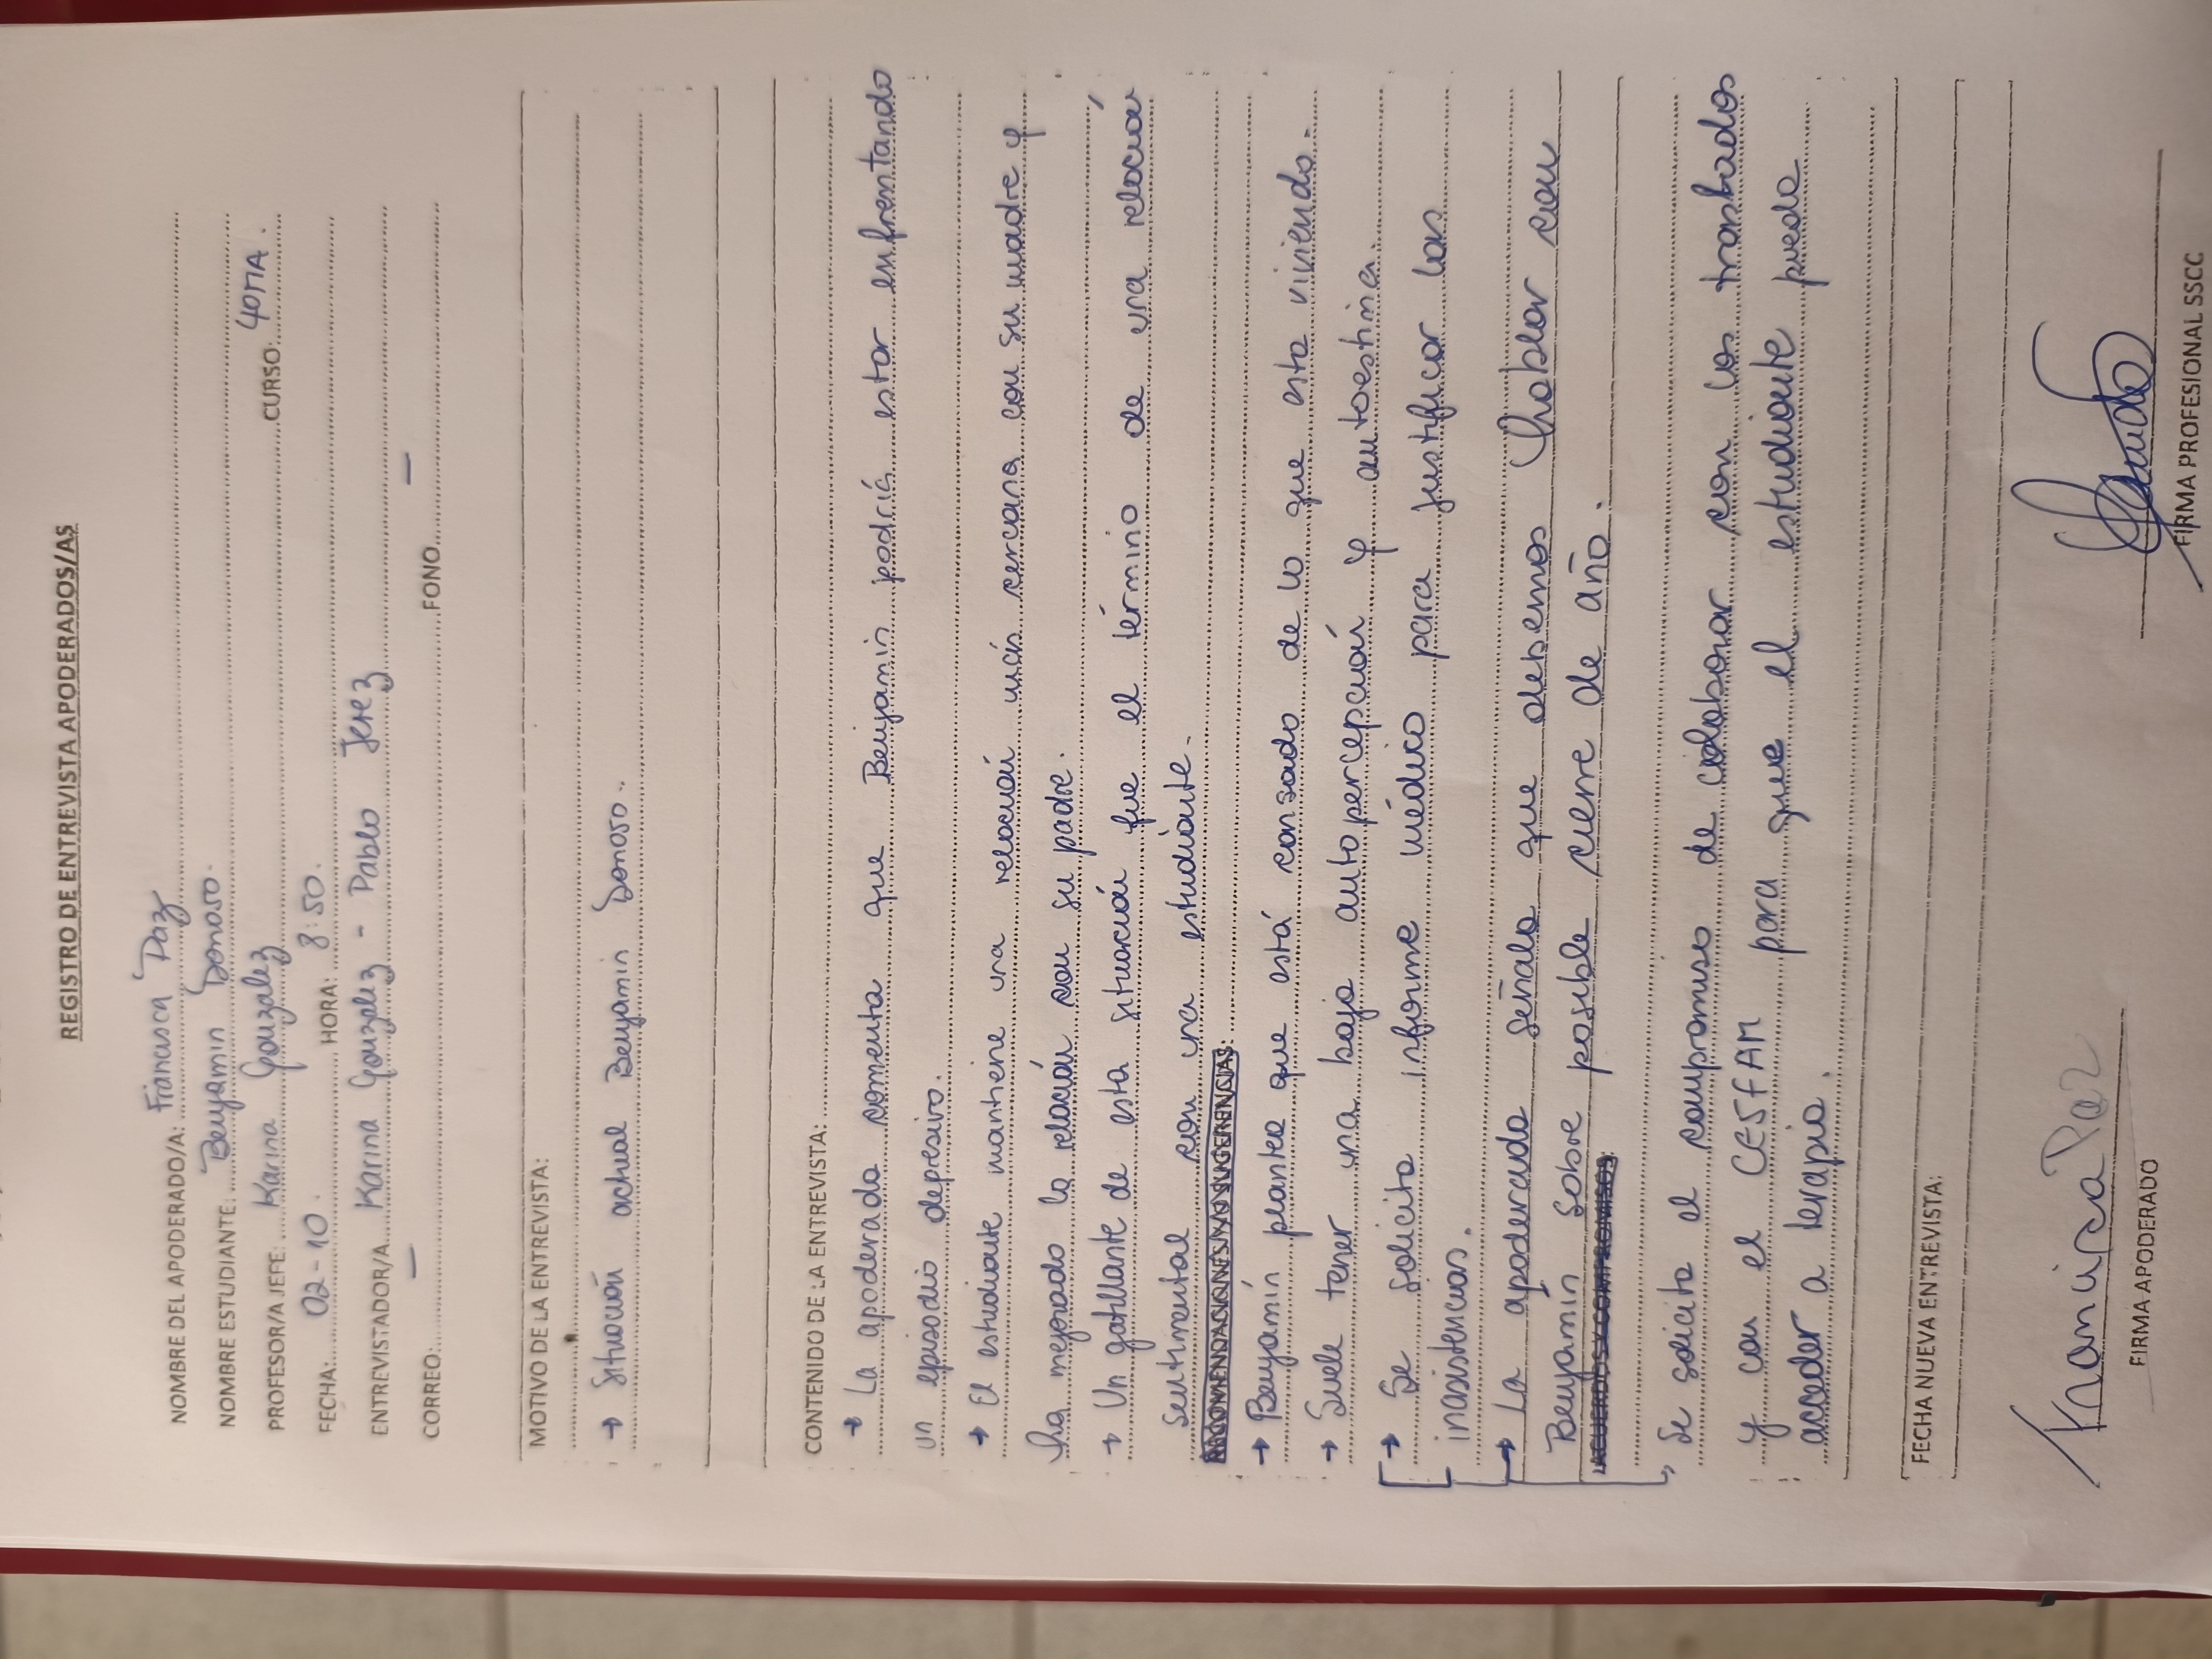 REGISTRO DE ENTREVISTA APODERADOS/AS
NOMBRE DEL APODERADO/A: Francisca Paz
NOMBRE ESTUDIANTE: Benjamin Donoso.
PROFESOR/A JEFE: Karina Gonzalez CURSO: 4OMA.
FECHA: 02-10. HORA: 8:50.
ENTREVISTADOR/A Karina Gonzalez - Pablo Jerez
CORREO: — FONO —
MOTIVO DE LA ENTREVISTA:
→ Situación actual Benjamin Donoso.
CONTENIDO DE LA ENTREVISTA:
→ La apoderada comenta que Benjamin podría estar enfrentando
un episodio depresivo.
→ El estudiante mantiene una relación más cercana con su madre y
ha mejorado la relación con su padre.
→ Un gatillante de esta situación fue el término de una relación
sentimental con una estudiante.
RECOMENDACIONES Y/O SUGERENCIAS:
→ Benjamín plantea que está cansado de lo que esta viviendo.
→ Suele tener una baja autopercepción y autoestima.
→ Se solicita informe médico para justificar las
inasistencias.
→ La apoderada señala que debemos hablar con
Benjamin sobre posible cierre de año.
ACUERDOS Y COMPROMISOS:
Se solicita el compromiso de colaborar con los
y con el CESFAM para que el estudiante pueda
acceder a terapia.
FECHA NUEVA ENTREVISTA:
Francisca Paz
FIRMA APODERADO
FIRMA PROFESIONAL SSCC